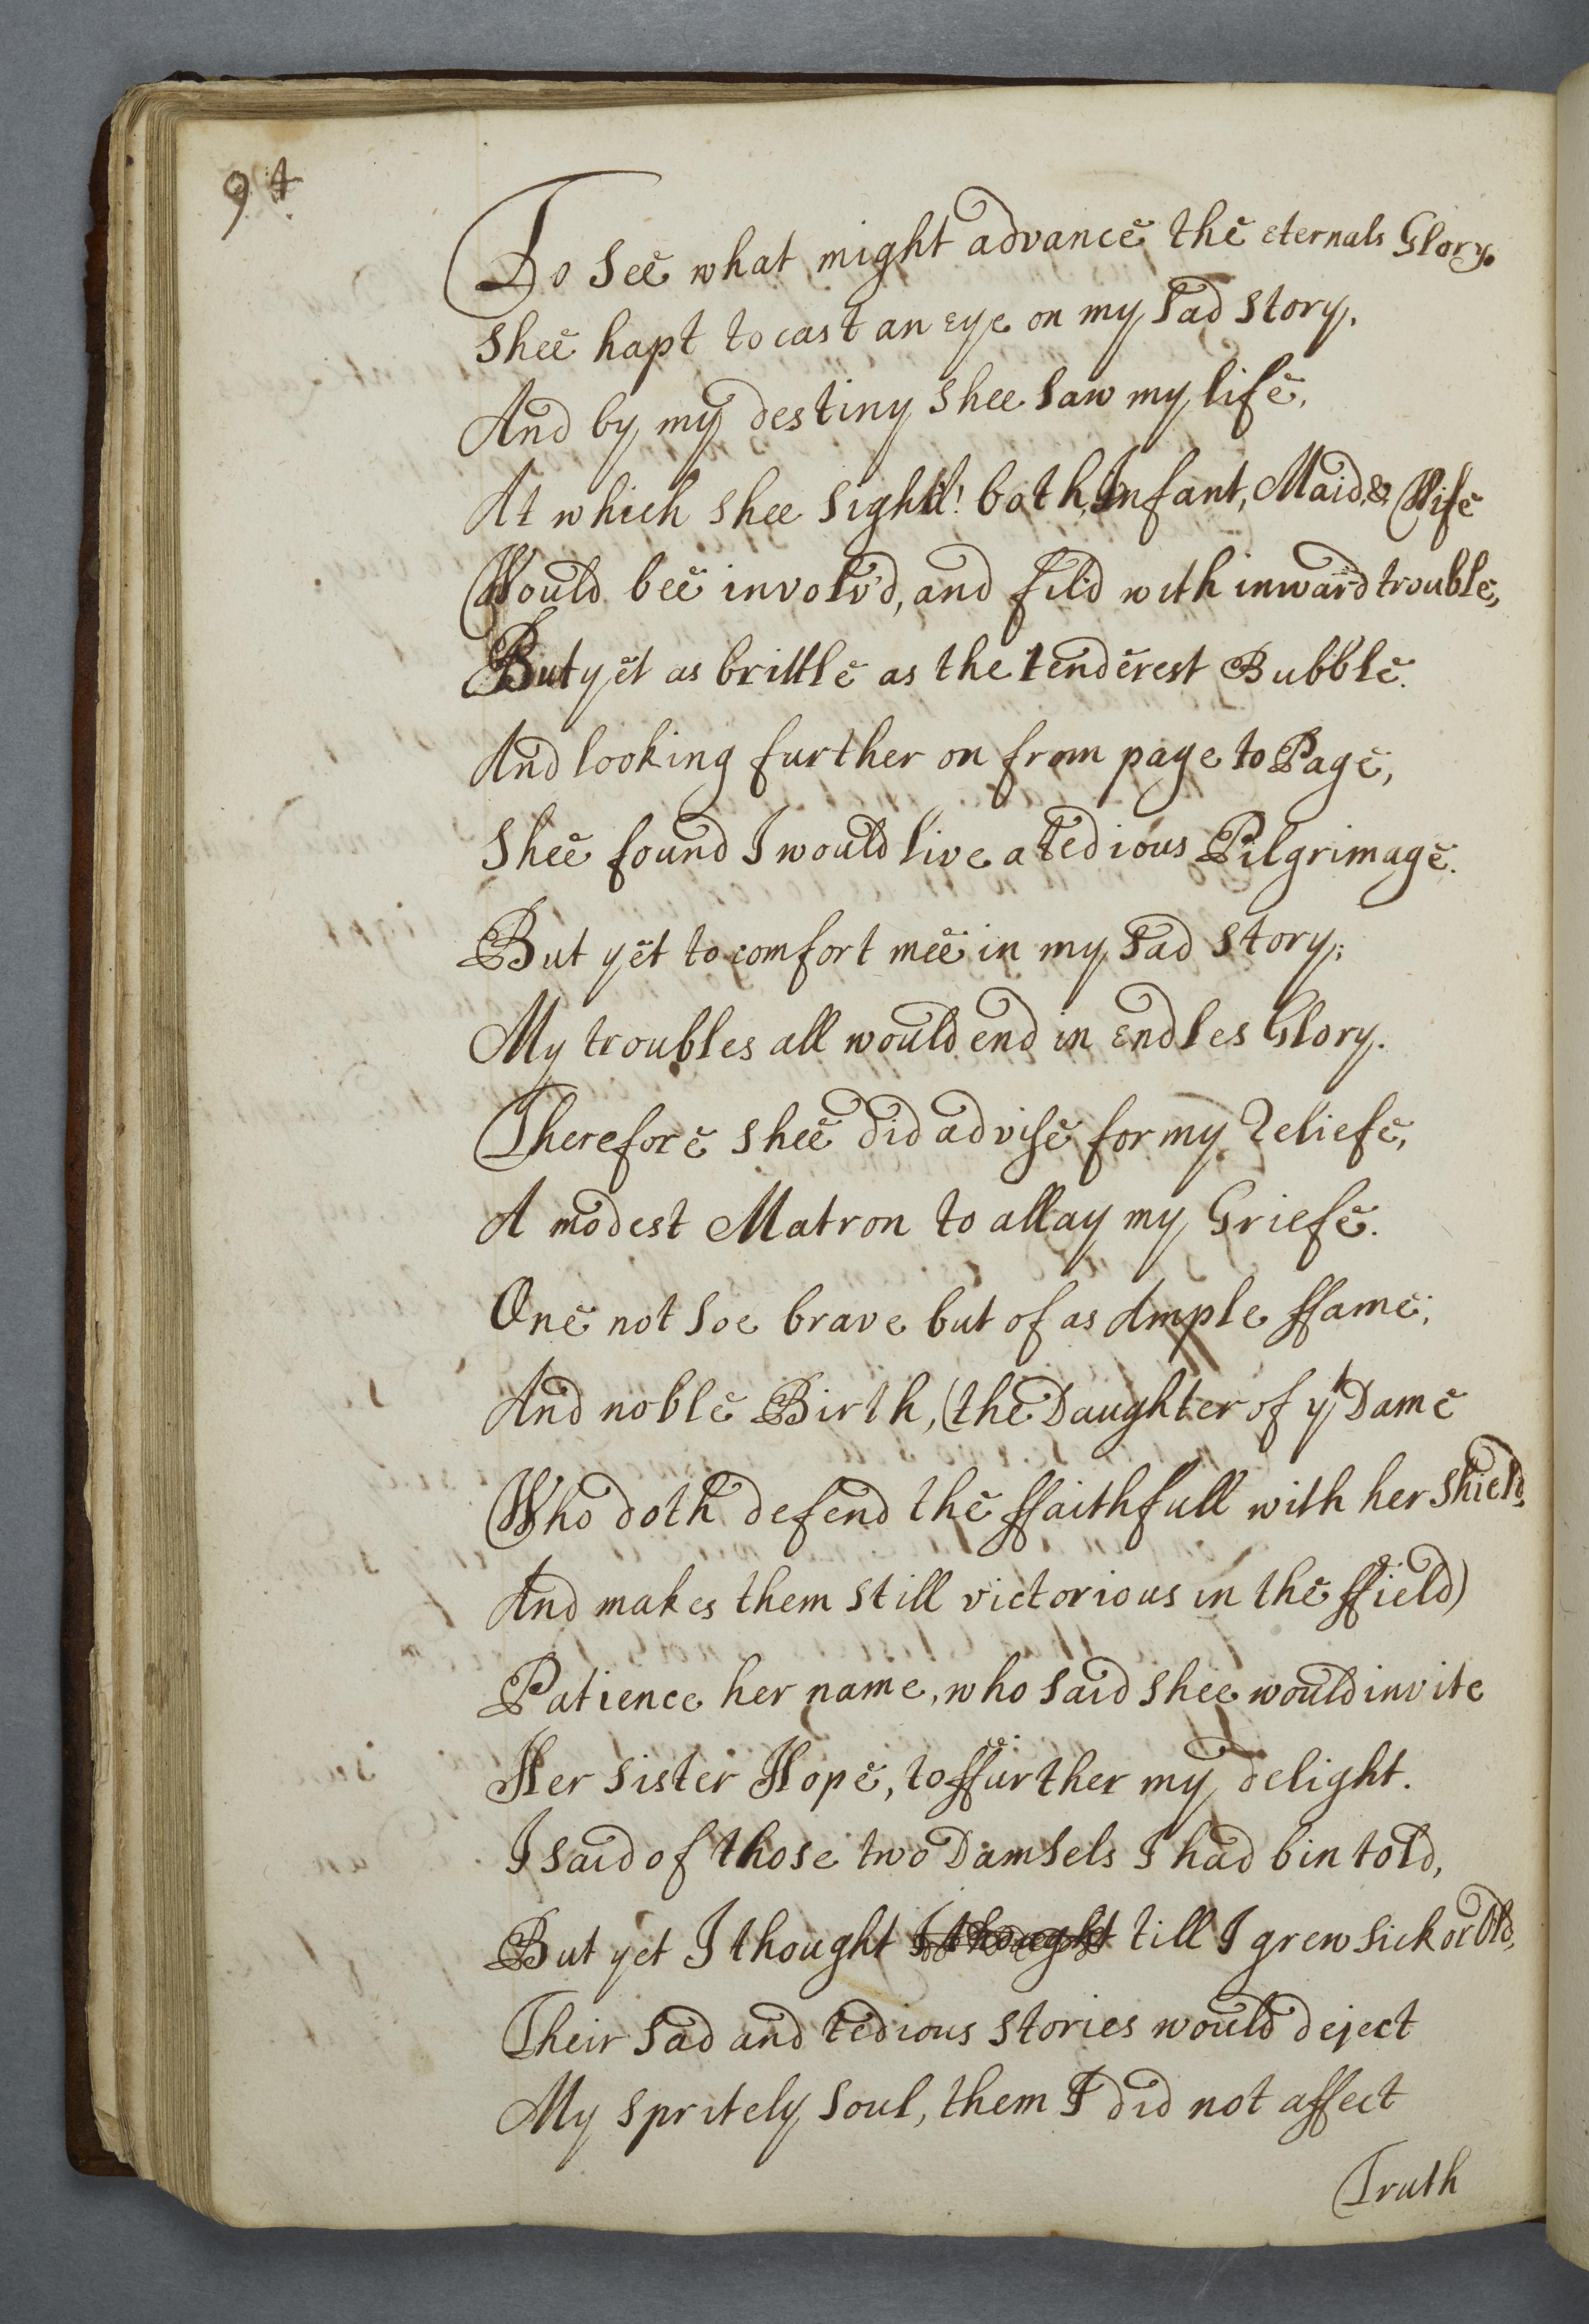 94
To see what might advance the eternals Glory.
Shee hapt to cast an eye on my sad story,
And by my destiny shee saw my life,
At which shee sigh'd! both, Infant, Maid, & Wife
Would bee involv'd, and fil'd with inward trouble,
But yet as brittle as the tenderest Bubble.
And looking further on from page to Page,
Shee found I would live a tedious Pilgrimage.
But yet to comfort mee in my sad story;
My troubles all would end in endles Glory.
Therefore shee did advise for my Reliefe,
A modest Matron to allay my Griefe.
One not soe brave but of as Ample ffame;
And noble Birth, (the Daughter of yt Dame
Who doth defend the ffaithfull with her Shield,
And makes them still victorious in the ffield)
Patience her name, who said shee would invite
Her sister Hope, to ffurther my delight.
I said of those two Damsels I had bin told,
But yet I thought I thought till I grew sick or Old,
Their sad and tedious stories would deject
My spritely soul, them I did not affect
Truth